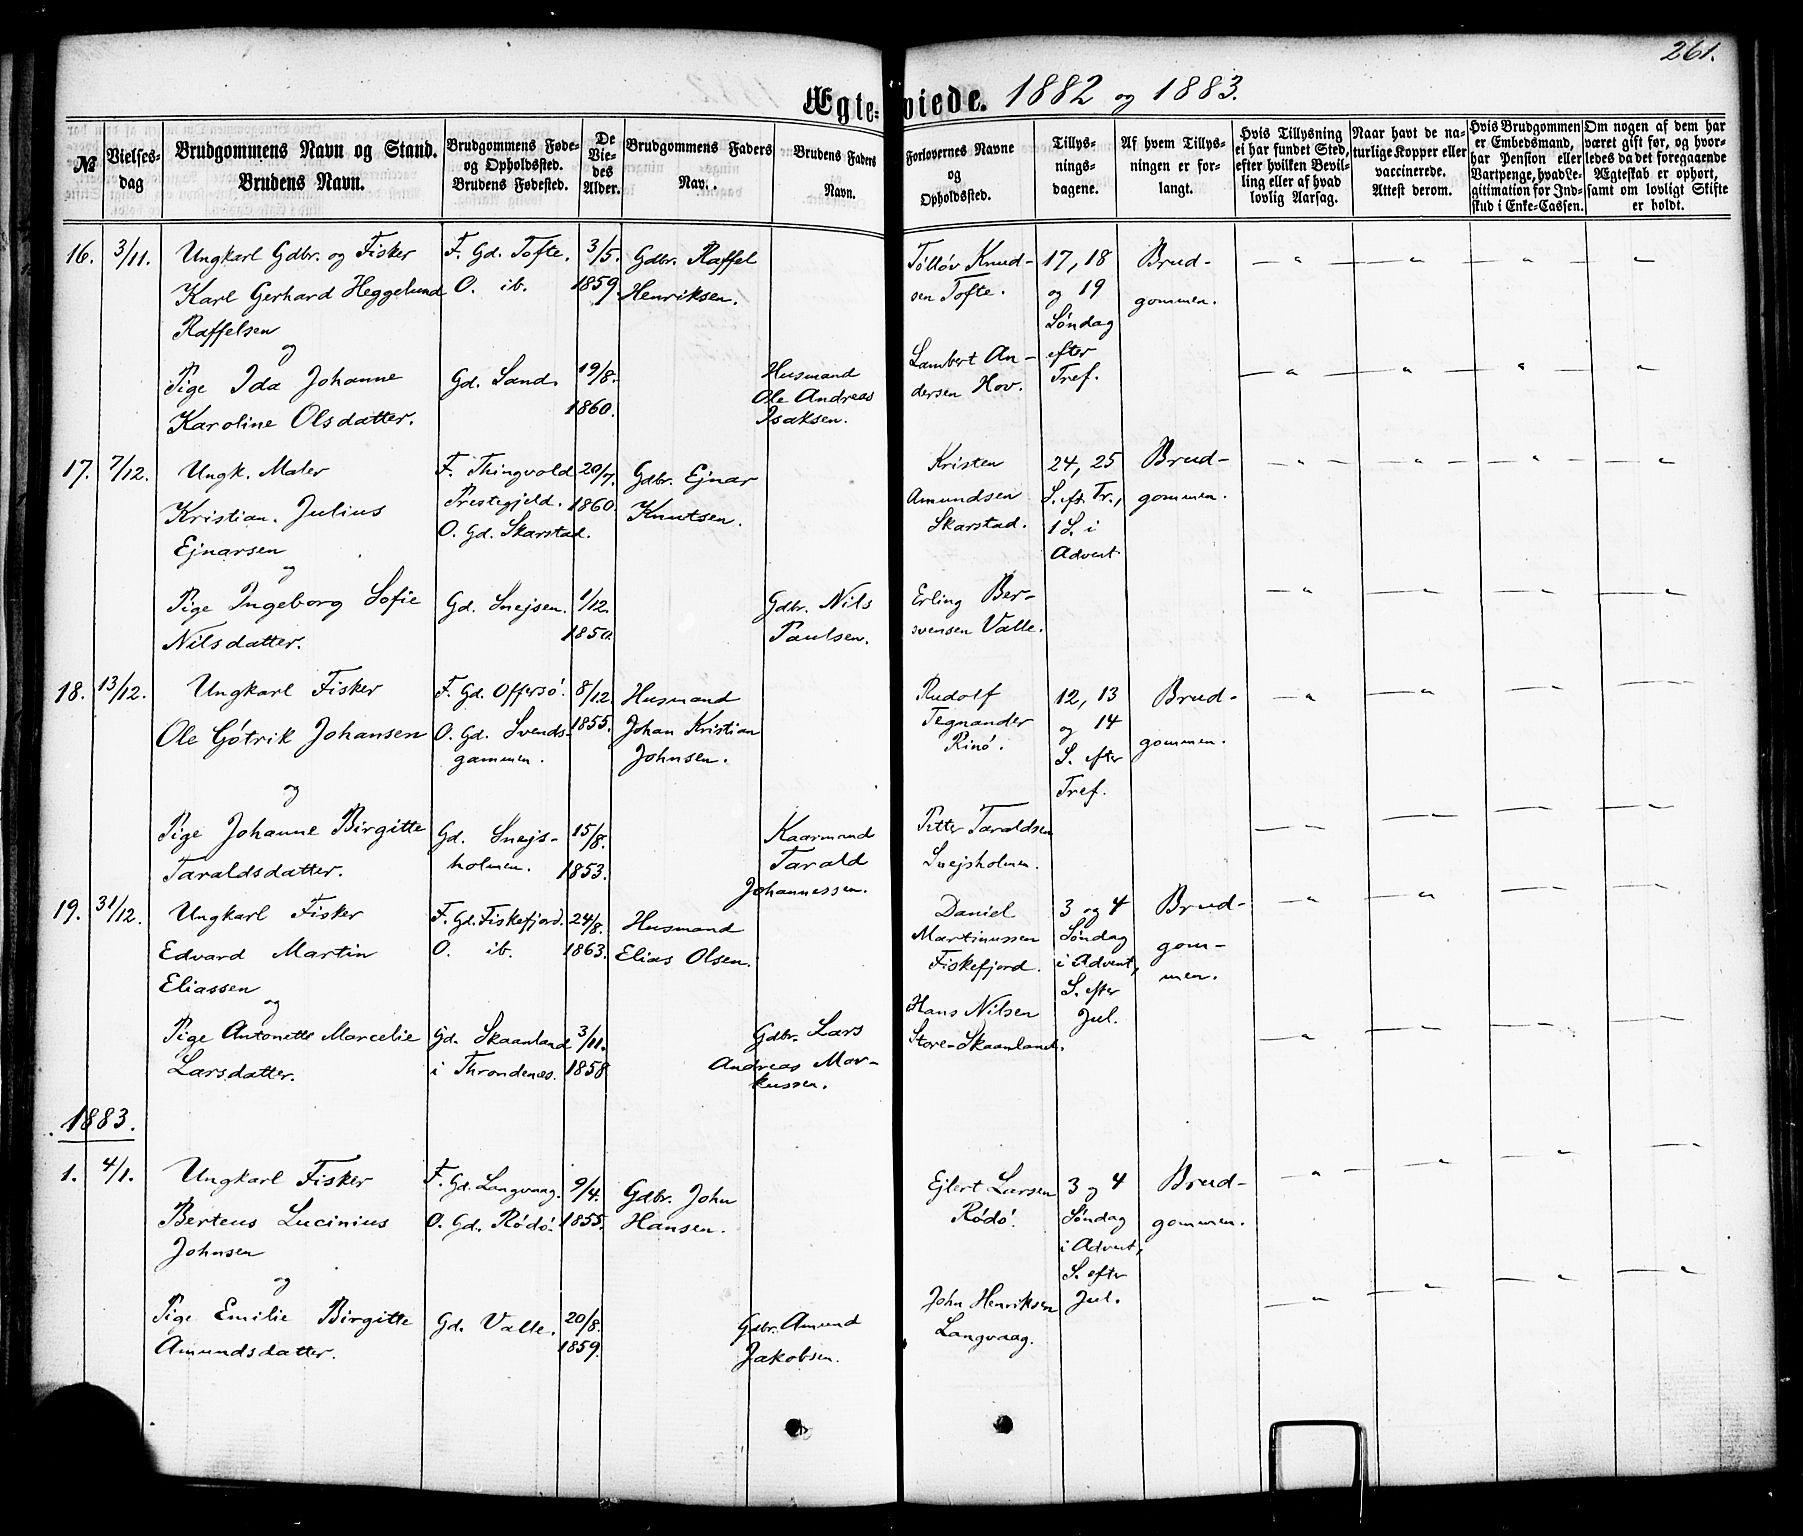 261.
Ægteviede. 1882 og 1883.
№
Vielses-
dag
Brudgommens Navn og Stand.
Brudens Navn.
Brudgommens Føde-
og Opholdssted.
Brudens Fødested.
De
Vie-
des
Alder.
Brudgommens Faders
Navn.
Brudens Faders
Navn.
Forlovernes Navne
og
Opholdssted.
Tillys-
nings-
dagene.
Af hvem Tillys-
ningen er for-
langt.
Hvis Tillysning
ei har fundet Sted,
efter hvilken Bevil-
ling eller af hvad
lovlig Aarsag.
Naar havt de na-
turlige Kopper eller
vaccinerede.
Attest derom.
Hvis Brudgommen
er Embedsmand,
har Pension eller
Vartpenge, hvad Le-
gitimation for Ind-
skud i Enke-Cassen.
Om nogen af dem har
været gift før, og hvor-
ledes da det foregaaende
Ægteskab er ophørt,
samt om lovligt Skifte
er holdt.
16. 3/11. Ungkarl Gdbr. og Fisker F. Gd. Tofte. 3/5. Gdbr. Raffel Tølløv Knud- 17, 18 Brud- — " — " — " — "
Karl Gerhard Heggelund O. ib. 1859. Henriksen. sen Tofte. og 19 gommen.
Raffelsen Søndag
og Lambert An- efter
Pige Ida Johanne Gd. Sand. 19/8. Husmand dersen Hov. Tref. — " — " — " — "
Karoline Olsdatter. 1860. Ole Andreas
Isaksen.
17. 7/12. Ungk. Maler F. Thingvold 20/7. Gdbr. Ejnar Kristen 24, 25 Brud- — " — " — " — "
Kristian Julius Prestegjeld. 1860. Knutsen. Amundsen S. eft. Tr., gommen.
Ejnarsen O. Gd. Skarstad. Skarstad. 1 S. i
og Advent.
Pige Ingeborg Sofie Gd. Snejsen. 1/12. Gdbr. Nils Erling Ber- — " — " — " — "
Nilsdatter. 1850. Paulsen. svensen Valle.
18. 13/12. Ungkarl Fisker F. Gd. Offersø. 8/12. Husmand Rudolf 12, 13 Brud- — " — " — " —
Ole Gøtrik Johansen O. Gd. Svends- 1855. Johan Kristian Tegnander og 14 gommen.
gammen. Johnsen. Rinø. S. efter
og Tref.
Pige Johanne Birgitte Gd. Snejs- 15/8. Kaarmand Petter Taraldsen — " — " — " — "
Taraldsdatter. holmen. 1853. Tarald Snejsholmen.
Johannessen.
19. 31/12. Ungkarl Fisker F. Gd. Fiskefjord. 24/8. Husmand Daniel 3 og 4 Brud- — " — " — " — "
Edvard Martin O. ib. 1863. Elias Olsen. Martinussen Søndag gom-
Eliassen Fiskefjord. i Advent, men.
og Hans Nilsen S. efter
Pige Antonette Marcelie Gd. Skaanland 3/11. Gdbr. Lars Store-Skaanland. Jul. — " — " — " — "
Larsdatter. i Throndenæs. 1858 Andreas Mar-
kussen.
1883.
1. 4/1. Ungkarl Fisker F. Gd. Langvaag. 9/4. Gdbr. John Ejlert Larsen 3 og 4 Brud- — " — " — " — "
Berteus Lucinius O. Gd. Rødø. 1855. Hansen. Rødø. Søndag gommen.
Johnsen i Advent,
og S. efter
Pige Emilie Birgitte Gd. Valle. 20/8. Gdbr. Amund John Henriksen Jul. — " — " — " — "
Amundsdatter. 1859. Jakobsen. Langvaag.